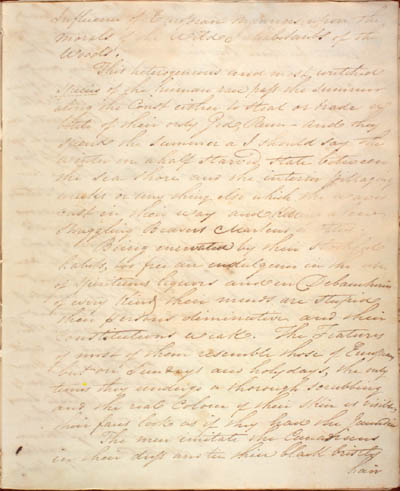 Influence of European manners upon the
morals of the Wild Inhabitants of the
Woods.
This heterogeneous and most wretched
Species of the human race pass the Summer
along the Coast either to Steal or trade
of their only God, Rum - and they
the Summer a I should say the
winter in a half starved State between
the sea Shore and the interior
or any thing else which the
cast in their way and
Straggling Beavers Martens
Being enervated by their
habits, too free an indulgence in the use
of Spirituous liquors and in Debaucheries
of every kind, their minds are Stupid
their persons diminutive and their
Constitutions weak. The Features
of most of them resemble those of Europeans
but on Sundays and holydays, the only
times they undergo a thorough Scrubbing
and the real Colour of their Skin is visible,
their faces look as if they had the Jaundice
The men imitate the Canadians
in their dress and tie their black bristly
hair